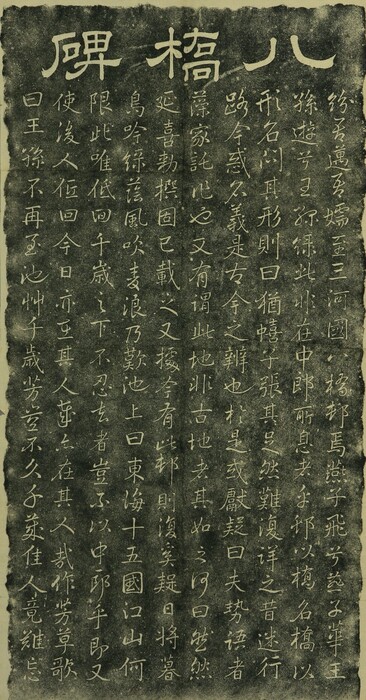 八橋碑
紛吾邁吾嬬至三河國八橋邨焉燕子飛兮燕子華王
孫遊兮王孫緑此非在中郎所息者乎邨以橋名橋以
形名問其形則曰猶蟢子張其足然難復詳之昔迷行
路今惑名義是古今之難也於是或獻疑曰夫勢語者
藻家託也又有謂此地非古地者其如之何曰然然
延喜勅撰固已載之又據今有此邨則復奚疑日將暮
鳥吟緑蔭風吹麦浪乃歎池上曰東海十五國江山何
限此唯低回千歳之下不忍去者豈不以中郎乎即又
使後人低回今日亦在其人哉亦在其人哉作芳草歌
曰王孫不再至池艸千歳芳豈不久千歳佳人竟難忘